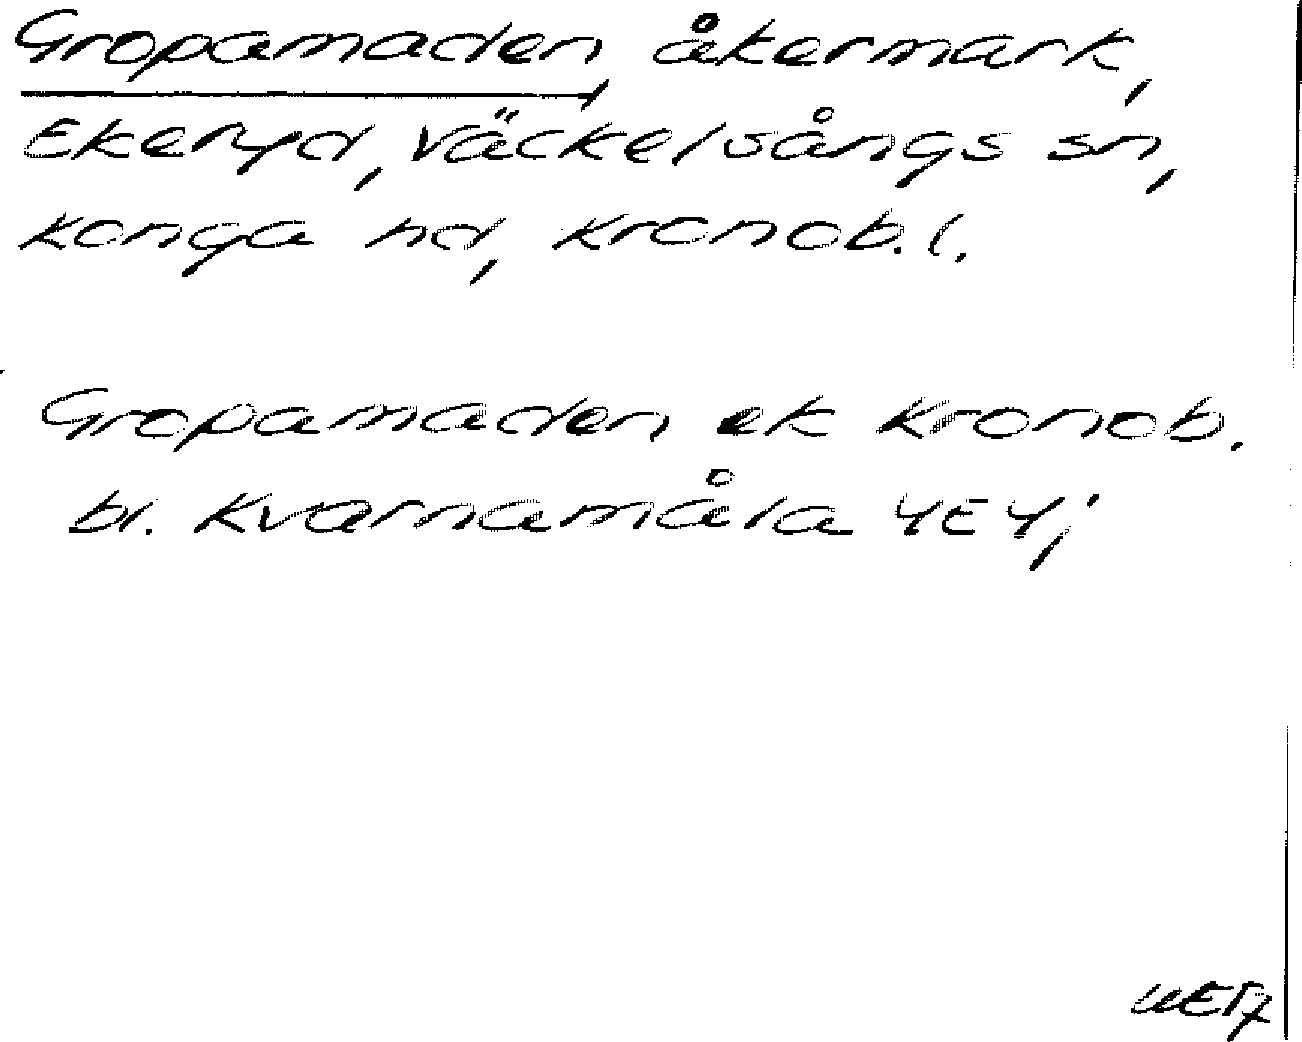 Gropamaden, åkermark,
Ekeryd, Väckelsångs sn,
Konga hd, Kronob. l.
Gropamaden ek Kronob.
bl. Kvarnamåla 4E4;